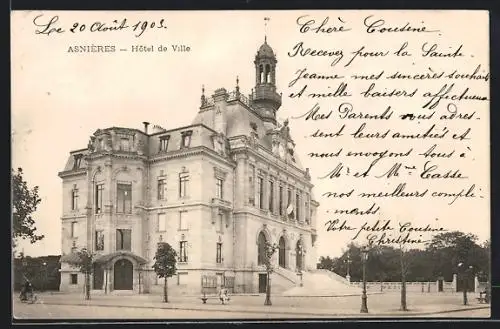 Le 20 Août 1903.
ASNIÈRES — Hôtel de Ville
Chère Cousine
Recevez pour la Sainte
Jeanne mes sincères souhaits
et mille baisers affectueux
Mes Parents vous adres-
sent leurs amitiés et
nous envoyons tous à
Mr et Mme Casse
nos meilleurs compli-
ments.
Votre petite Cousine
Christine